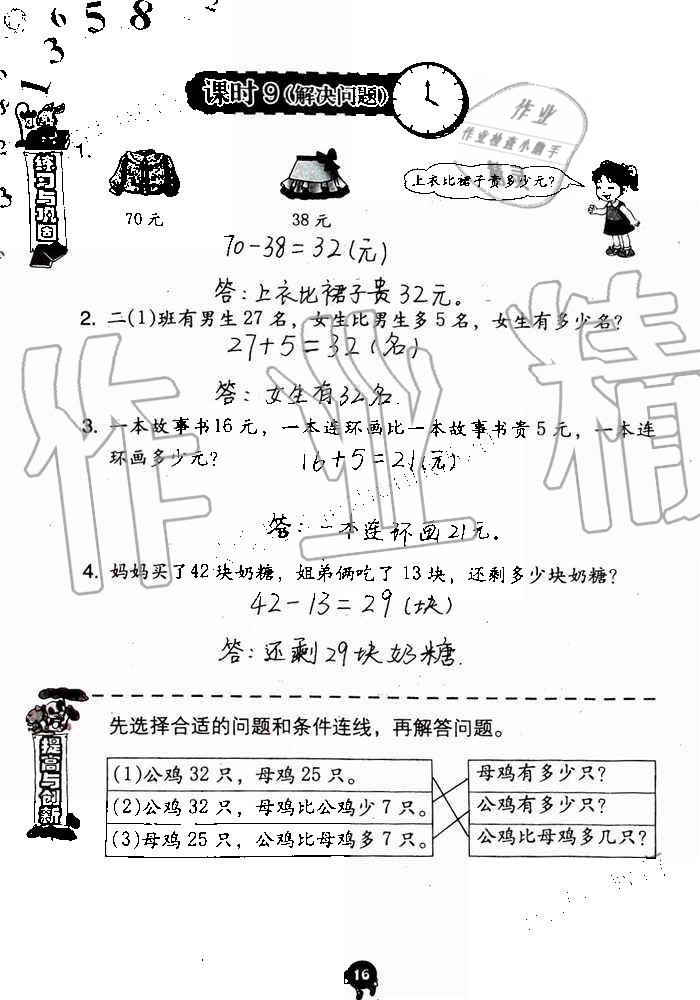 0 6 5 8
3
1
课时9(解决问题)
作业
作业检查小助手
练习与巩固
1.
上衣比裙子贵多少元?
70元 38元
70-38=32(元)
答:上衣比裙子贵32元。
2. 二(1)班有男生27名,女生比男生多5名,女生有多少名?
27+5=32(名)
答:女生有32名.
3. 一本故事书16元,一本连环画比一本故事书贵5元,一本连
环画多少元? 16+5=21(元)
答:一本连环画21元。
4. 妈妈买了42块奶糖,姐弟俩吃了13块,还剩多少块奶糖?
42-13=29(块)
答:还剩29块奶糖.
作业精
提高与创新
先选择合适的问题和条件连线,再解答问题。
(1)公鸡32只,母鸡25只。 母鸡有多少只?
(2)公鸡32只,母鸡比公鸡少7只。 公鸡有多少只?
(3)母鸡25只,公鸡比母鸡多7只。 公鸡比母鸡多几只?
16